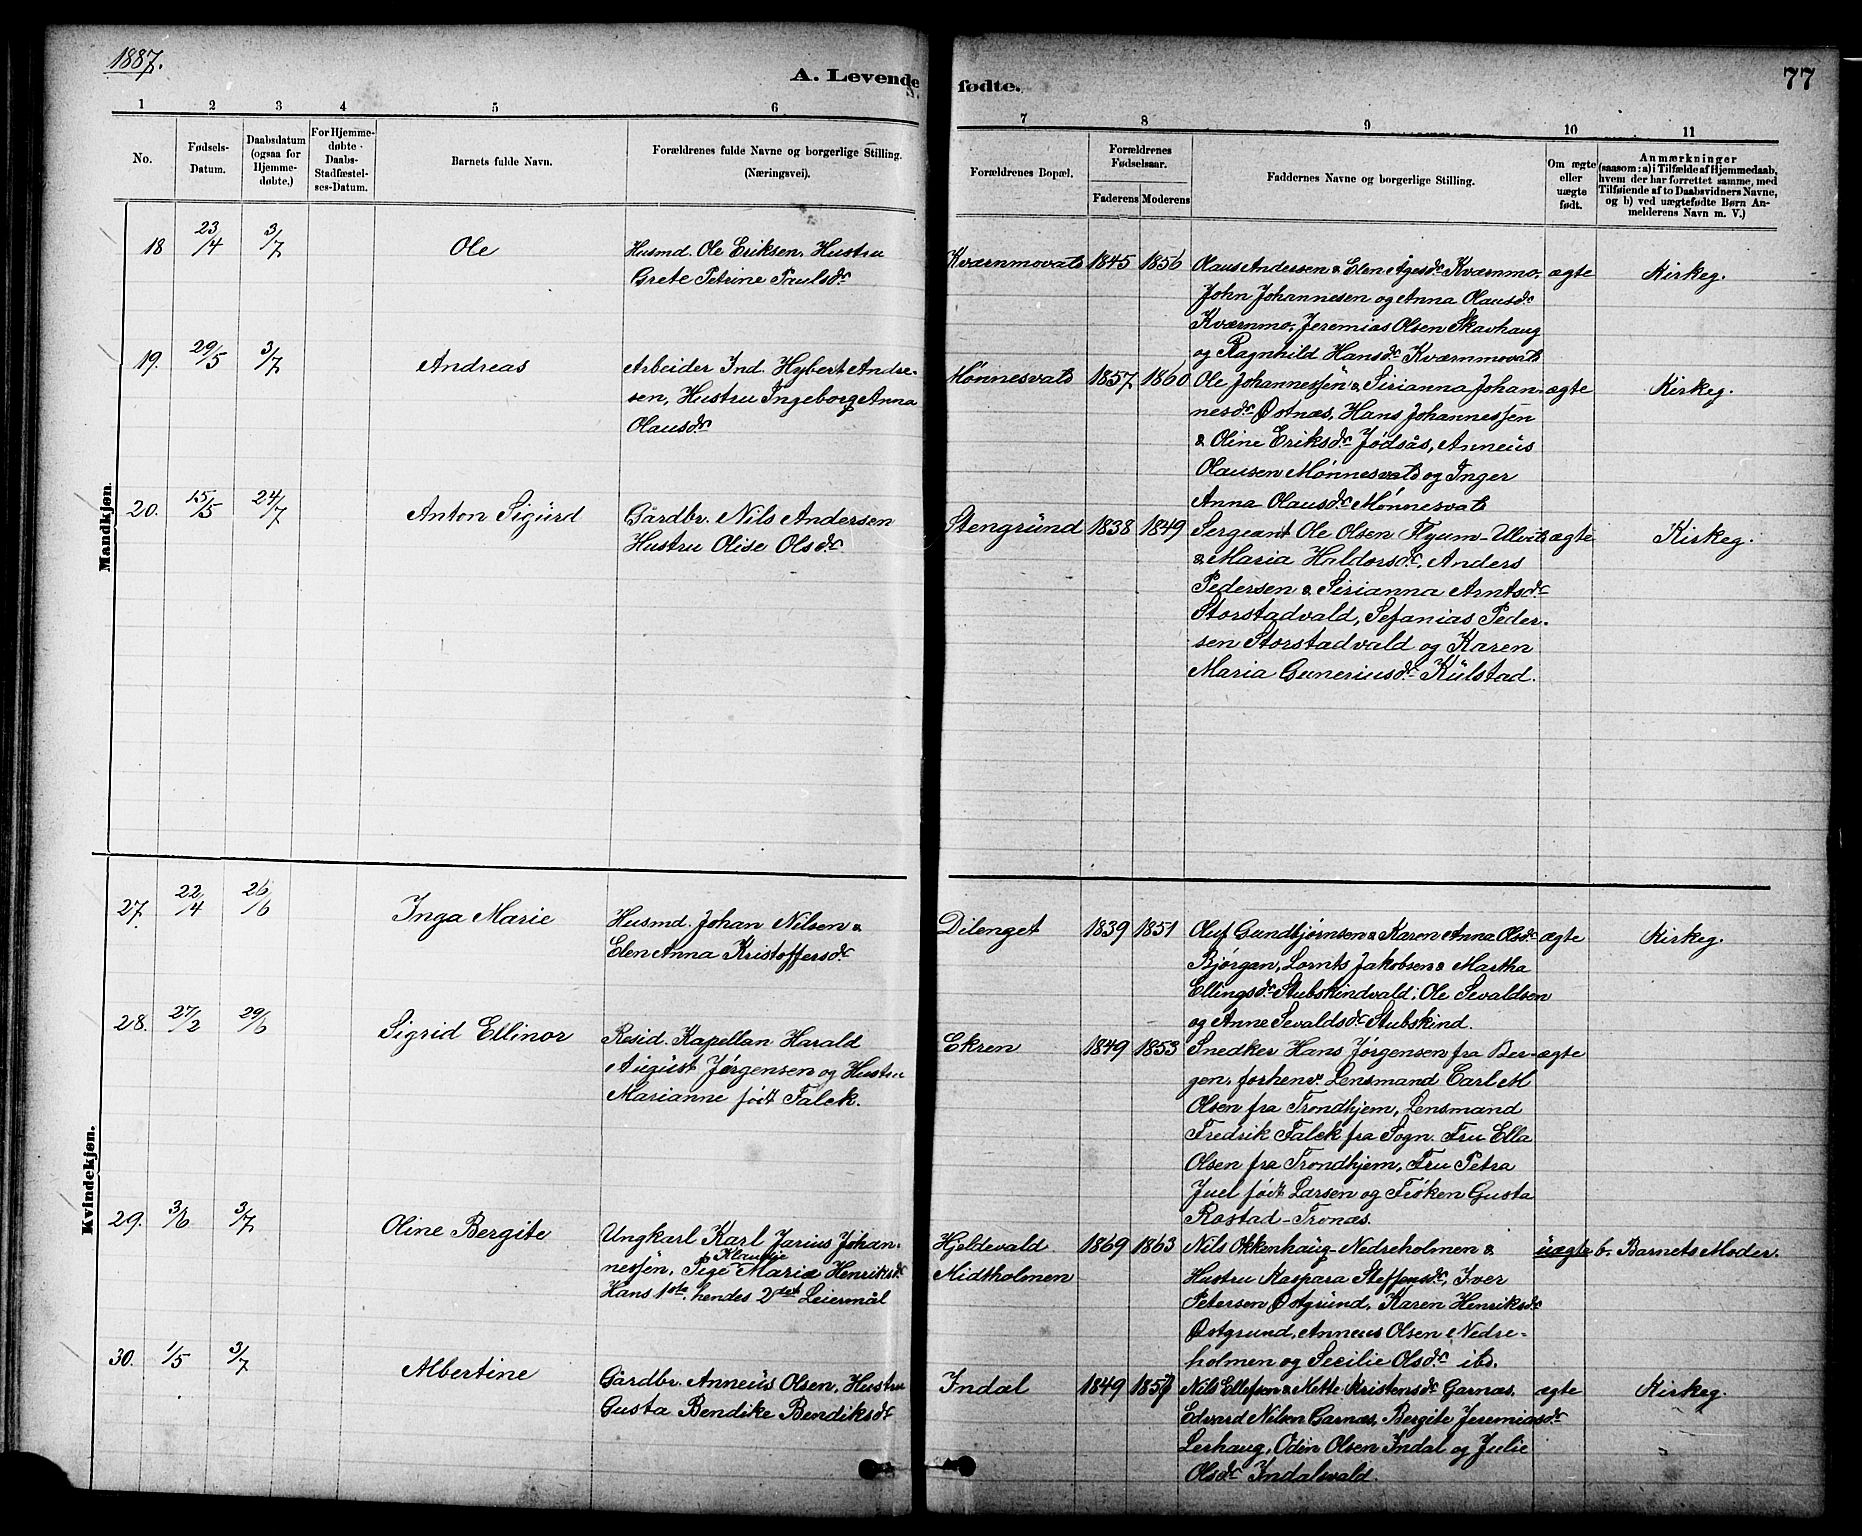 1887.
A. Levende fødte.
77
1 2 3 4 5 6 7 8 9 10 11
No.
Fødsels-
Datum.
Daabsdatum
(ogsaa for
Hjemme-
døbte.)
For Hjemme-
døbte
Daabs-
Stadfæstel-
ses-Datum.
Barnets fulde Navn.
Forældrenes fulde Navne og borgerlige Stilling.
(Næringsvei).
Forældrenes Bopæl.
Forældrenes
Fødselsaar.
Faderens Moderens
Faddernes Navne og borgerlige Stilling.
Om ægte
eller
uægte
født.
Anmærkninger
(saasom: a) i Tilfælde af Hjemmedaab,
hvem der har forrettet samme, med
Tilføiende af to Daabsvidners Navne,
og b) ved uægtefødte Børn An-
melderens Navn m. V.)
Mandkjøn.
18 23/4 3/7 Ole
Husmd. Ole Eriksen, Hustru
Grete Petrine Paulsdr
Kværnmovald 1845 1856
Olaus Andersen & Elen Ågesdr Kværnmo,
John Johannesen og Anna Olausdr
Kværnmo, Jeremias Olsen Skavhaug
og Ragnhild Hansdr Kværnmovald
ægte Kirkeg.
19. 29/5 3/7 Andreas
Arbeider Ind. Hybert Andre-
sen, Hustru Ingeborg Anna
Olausdr
Mønnesvald 1857 1860
Ole Johannessen & Sirianna Johan-
nesdr Østnæs, Hans Johannessen
& Oline Eriksdr Jødsås, Anneus
Olausen Mønnesvald og Inger
Anna Olausdr Mønnesvald
ægte Kirkeg.
20. 15/5 24/7 Anton Sigurd
Gårdbr. Nils Andersen
Hustru Olise Olsdr
Stengrund 1838 1849
Sergeant Ole Olsen Flyum-Ulvild
& Maria Haldorsdr, Anders
Pedersen & Sirianna Arntsdr
Storstadvald, Sefanias Peder-
sen Storstadvald og Karen
Maria Guneriusdr Kulstad.
ægte Kirkeg.
Kvindekjøn.
27. 22/4 26/6 Inga Marie
Husmd. Johan Nilsen &
Elen Anna Kristoffersdr
Dilenget 1839 1851
Oluf Gundbjørnsen & Karen Anna Olsdr
Bjørgan, Lornts Jakobsen & Martha
Ellingsdr Stubskindvald, Ole Sevaldsen
og Anne Sevaldsdr Stubskind.
ægte Kirkeg.
28. 27/2 29/6 Sigrid Ellinor
Resid. Kapellan Harald
August Jørgensen og Hustru
Marianne født Falck.
Ekren 1849 1853
Snedker Hans Jørgensen fra Ber-
gen, forhenv. Lensmand Carl M
Olsen fra Trondhjem, Lensmand
Fredrik Falck fra Sogn. Fru Ella
Olsen fra Trondhjem, Fru Petra
Juel født Larsen og Frøken Gusta
Rostad-Tronæs.
ægte
29. 3/6 3/7 Oline Bergite
Ungkarl Karl Jarius Johan-
nessen, Pige Klaudie Maria Henriksdr
Hans 1ste, hendes 2det Leiermål
Hjeldevald
Midtholmen
1869 1863
Nils Okkenhaug-Nedreholmen &
Hustru Kaspara Steffensdr, Iver
Petersen Østgrund, Karen Henriksdr
Østgrund, Anneus Olsen Nedre-
holmen og Secilie Olsdr ibd.
uægte b. Barnets Moder.
30. 1/5 3/7 Albertine
Gårdbr. Anneus Olsen, Hustru
Gusta Bendike Bendiksdr
Indal 1849 1857
Nils Ellefsen & Mette Kristensdr Garnæs,
Edvard Nilsen Garnæs, Bergite Jeremiasdr
Lerhaug, Odin Olsen Indal og Julie
Olsdr Indalsvald.
ægte Kirkeg.